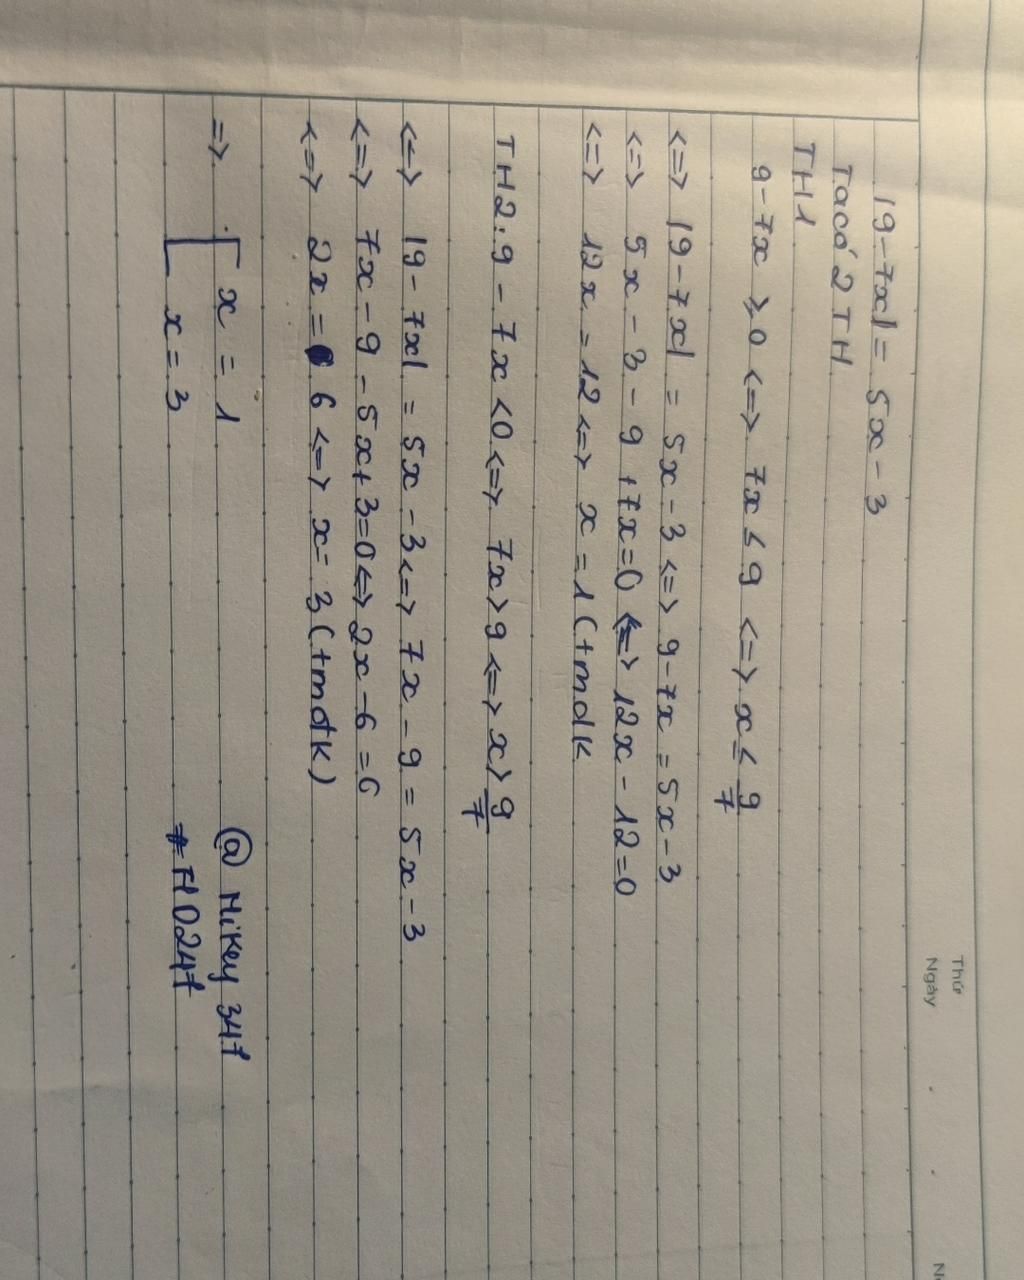 Thứ
Ngày
|9-7x| = 5x-3
Ta có 2 TH
TH1
9-7x ≥ 0 <=> 7x ≤ 9 <=> x ≤ 9/7
<=> |9-7x| = 5x-3 <=> 9-7x = 5x-3
<=> 5x-3-9+7x=0 <=> 12x-12=0
<=> 12x=12 <=> x=1 (tmdk
TH2: 9-7x<0 <=> 7x>9 <=> x>9/7
<=> |9-7x| = 5x-3 <=> 7x-9 = 5x-3
<=> 7x-9-5x+3=0 <=> 2x-6=0
<=> 2x = 6 <=> x=3 (tmđk)
=> [ x = 1
x = 3
@Mikey347
#H0247